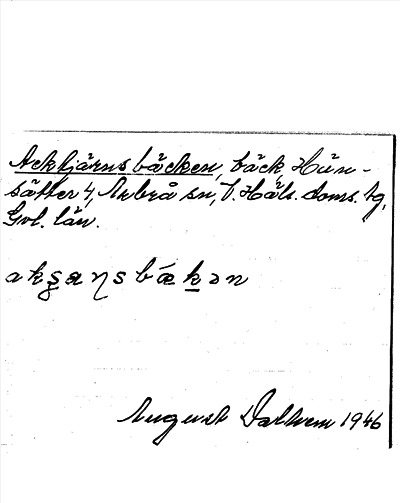 Ackkjärnsbäcken, bäck, Hün-
sätter 4, Arbrå sn, V. Häls. doms. hg,
Gvl. län.
akʂæɳsbækən
August Dalhem 1946